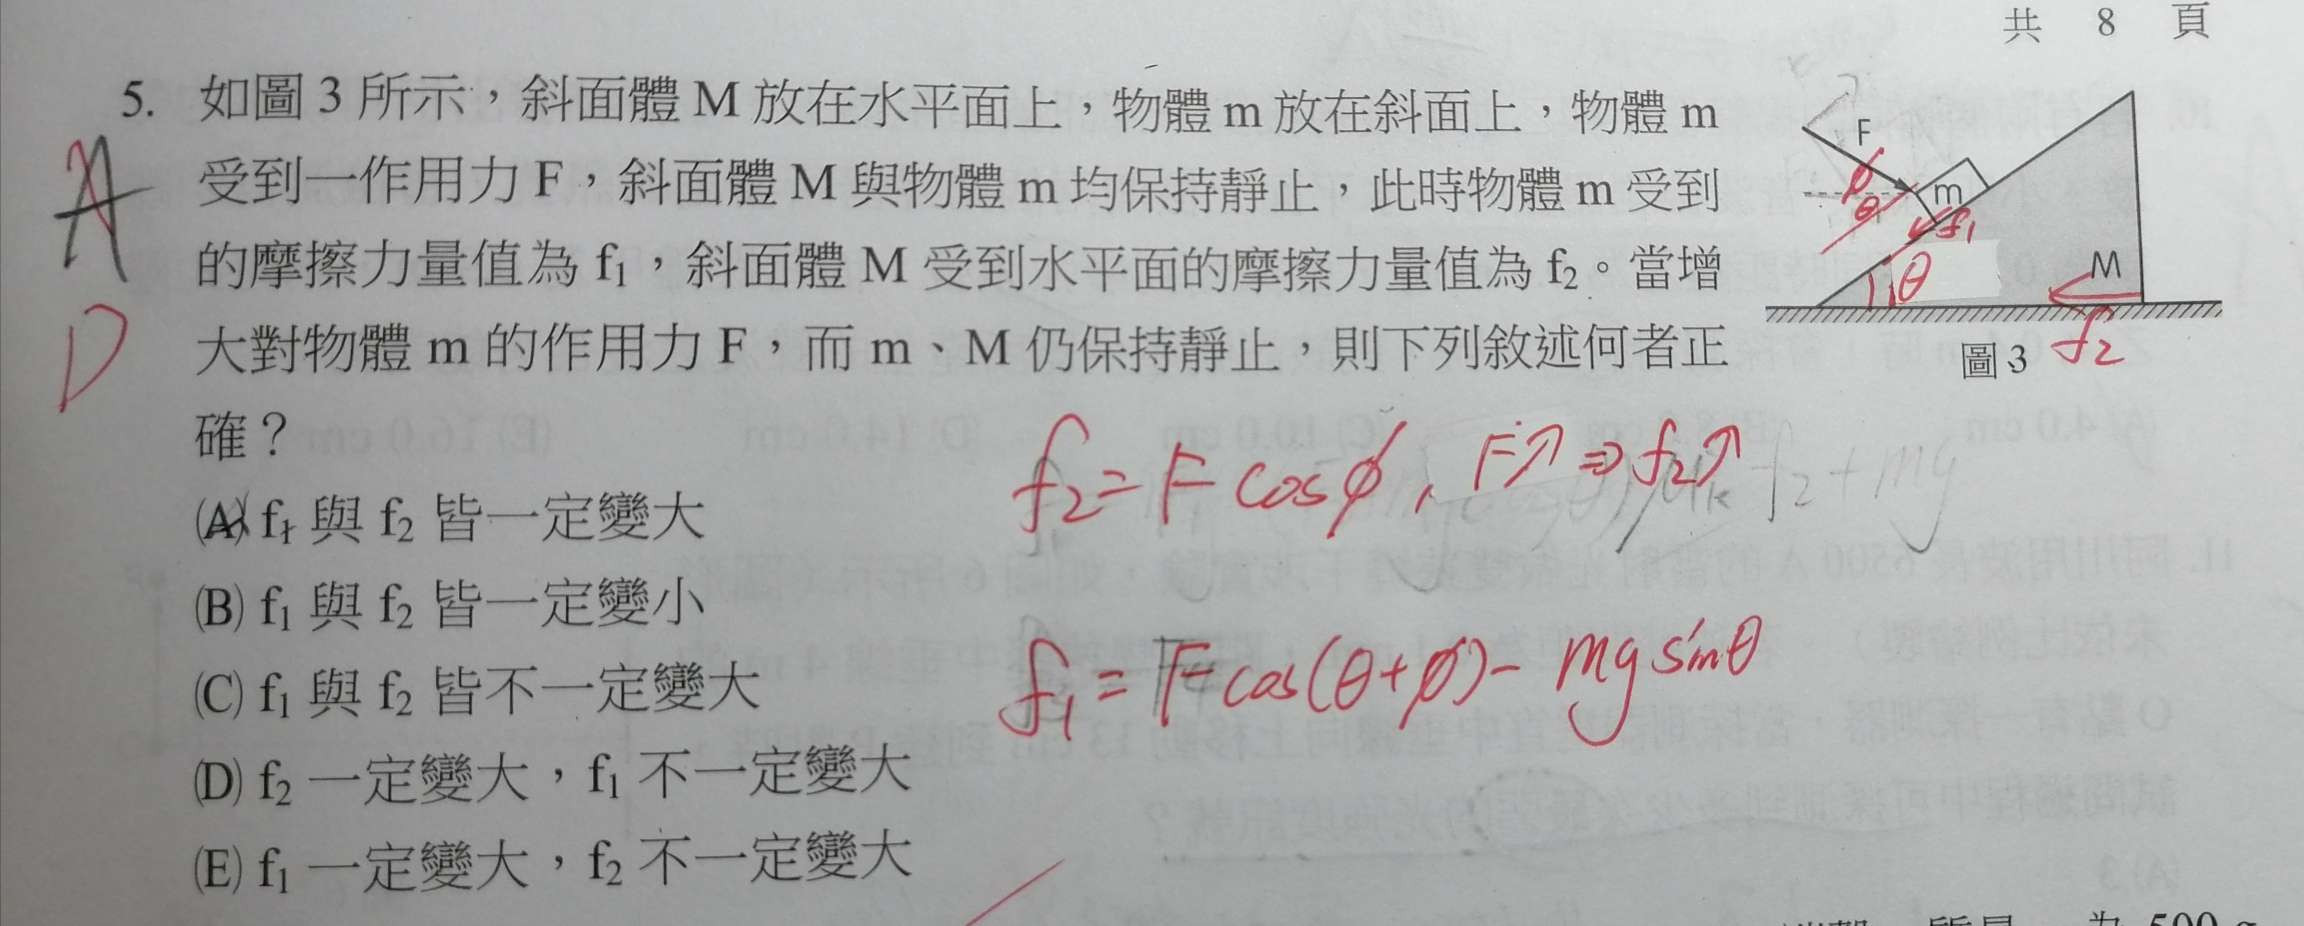 共 8 頁
5. 如圖 3 所示，斜面體 M 放在水平面上，物體 m 放在斜面上，物體 m
受到一作用力 F，斜面體 M 與物體 m 均保持靜止，此時物體 m 受到
的摩擦力量值為 f₁，斜面體 M 受到水平面的摩擦力量值為 f₂。當增
大對物體 m 的作用力 F，而 m、M 仍保持靜止，則下列敘述何者正
確？
A
D
F
m
φ
θ
f₁
θ
M
f₂
圖 3
(A) f₁ 與 f₂ 皆一定變大
(B) f₁ 與 f₂ 皆一定變小
(C) f₁ 與 f₂ 皆不一定變大
(D) f₂ 一定變大，f₁ 不一定變大
(E) f₁ 一定變大，f₂ 不一定變大
f₂ = F cosφ, F↑ ⇒ f₂↑
f₁ = F cos(θ+φ) - mg sinθ